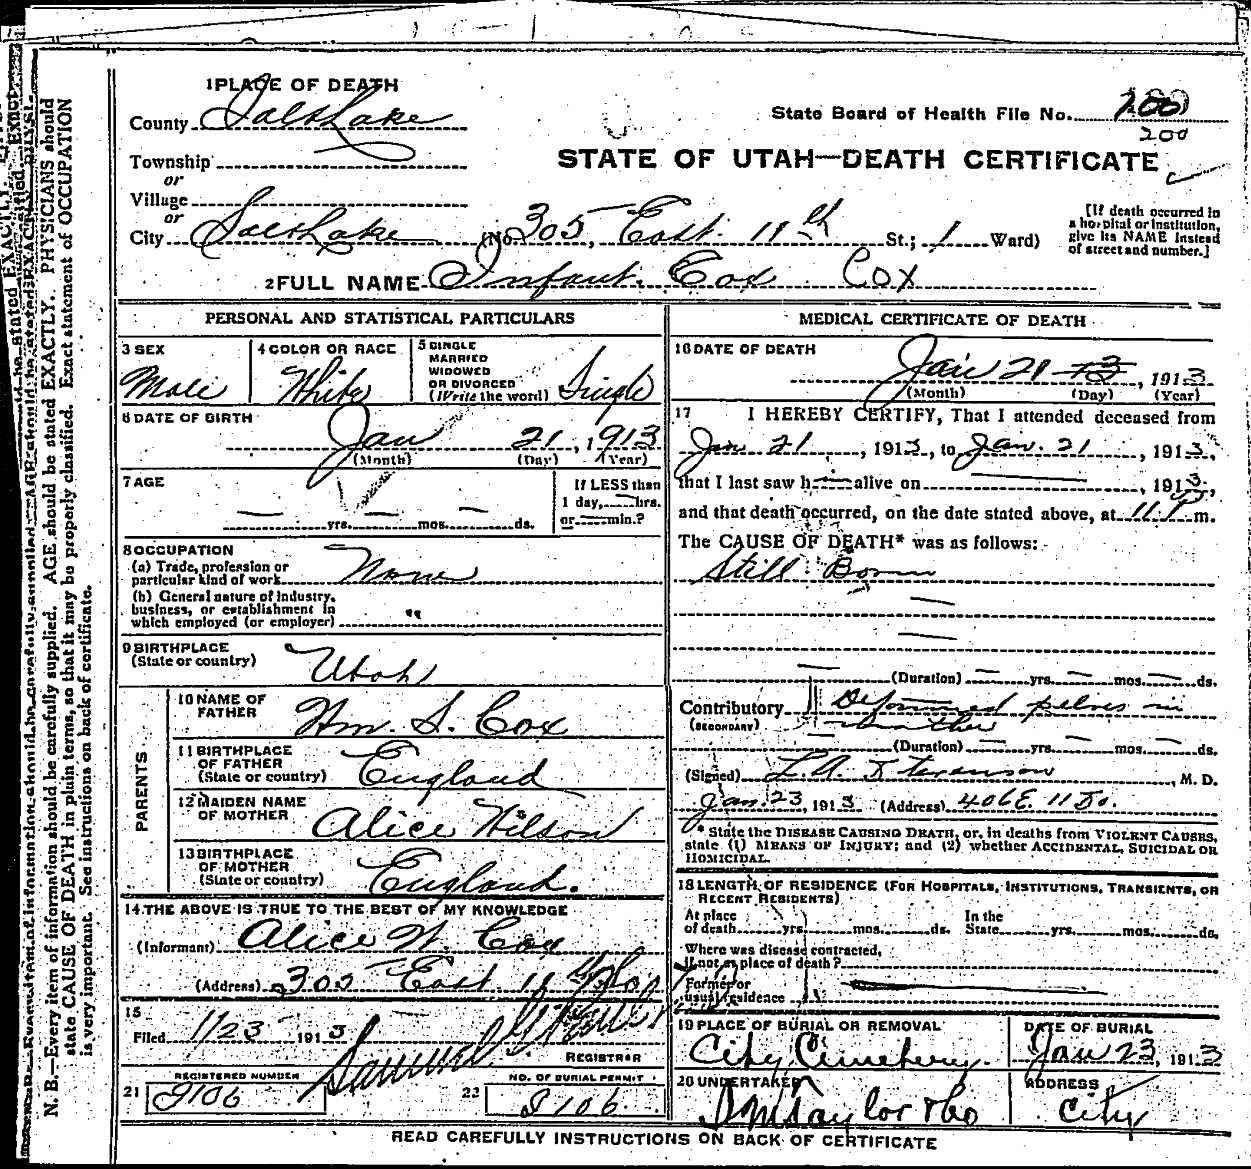 1 PLACE OF DEATH
County Salt Lake
State Board of Health File No. 200
200
Township
or
Village
or
City Salt Lake (No. 305, East 11th St.; 1 Ward)
STATE OF UTAH—DEATH CERTIFICATE
[If death occurred in
a hospital or institution,
give its NAME instead
of street and number.]
2 FULL NAME Infant Cox Cox
PERSONAL AND STATISTICAL PARTICULARS
3 SEX
Male
4 COLOR OR RACE
White
5 SINGLE
MARRIED
WIDOWED
OR DIVORCED
(Write the word) Single
6 DATE OF BIRTH
Jan 21, 1913
(Month) (Day) (Year)
7 AGE
— yrs. — mos. — ds.
If LESS than
1 day, — hrs.
or — min.?
8 OCCUPATION
(a) Trade, profession or
particular kind of work None
(b) General nature of industry,
business, or establishment in
which employed (or employer) "
9 BIRTHPLACE
(State or country) Utah
PARENTS
10 NAME OF
FATHER Wm. S. Cox
11 BIRTHPLACE
OF FATHER
(State or country) England
12 MAIDEN NAME
OF MOTHER Alice Wilson
13 BIRTHPLACE
OF MOTHER
(State or country) England.
14 THE ABOVE IS TRUE TO THE BEST OF MY KNOWLEDGE
(Informant) Alice W. Cox
(Address) 305 East 11
15
Filed 1/23 1913 Samuel
REGISTRAR
REGISTERED NUMBER
21 J106
NO. OF BURIAL PERMIT
22 J106
MEDICAL CERTIFICATE OF DEATH
16 DATE OF DEATH
Jan 21 13, 1913
(Month) (Day) (Year)
17 I HEREBY CERTIFY, That I attended deceased from
Jan 21, 1913, to Jan. 21, 1913,
that I last saw h— alive on —, 1913,
and that death occurred, on the date stated above, at 11 P m.
The CAUSE OF DEATH* was as follows:
Still Born
—
—
— (Duration) — yrs. — mos. — ds.
Contributory Deformed pelvis in
(SECONDARY) mother
(Duration) yrs. mos. ds.
(Signed) L.A. Stevenson, M. D.
Jan. 23, 1913 (Address) 406 E. 11 So.
* State the DISEASE CAUSING DEATH, or, in deaths from VIOLENT CAUSES,
state (1) MEANS OF INJURY; and (2) whether ACCIDENTAL, SUICIDAL OR
HOMICIDAL.
18 LENGTH OF RESIDENCE (FOR HOSPITALS, INSTITUTIONS, TRANSIENTS, OR
RECENT RESIDENTS)
At place
of death yrs. mos. ds.
In the
State yrs. mos. ds.
Where was disease contracted,
if not at place of death?
Former or
usual residence
19 PLACE OF BURIAL OR REMOVAL
City Cemetery.
DATE OF BURIAL
Jan 23, 1913
20 UNDERTAKER
S M Taylor & Co
ADDRESS
City
READ CAREFULLY INSTRUCTIONS ON BACK OF CERTIFICATE
N. B.—Every item of information should be carefully supplied. AGE should be stated EXACTLY. PHYSICIANS should
state CAUSE OF DEATH in plain terms, so that it may be properly classified. Exact statement of OCCUPATION
is very important. See instructions on back of certificate.